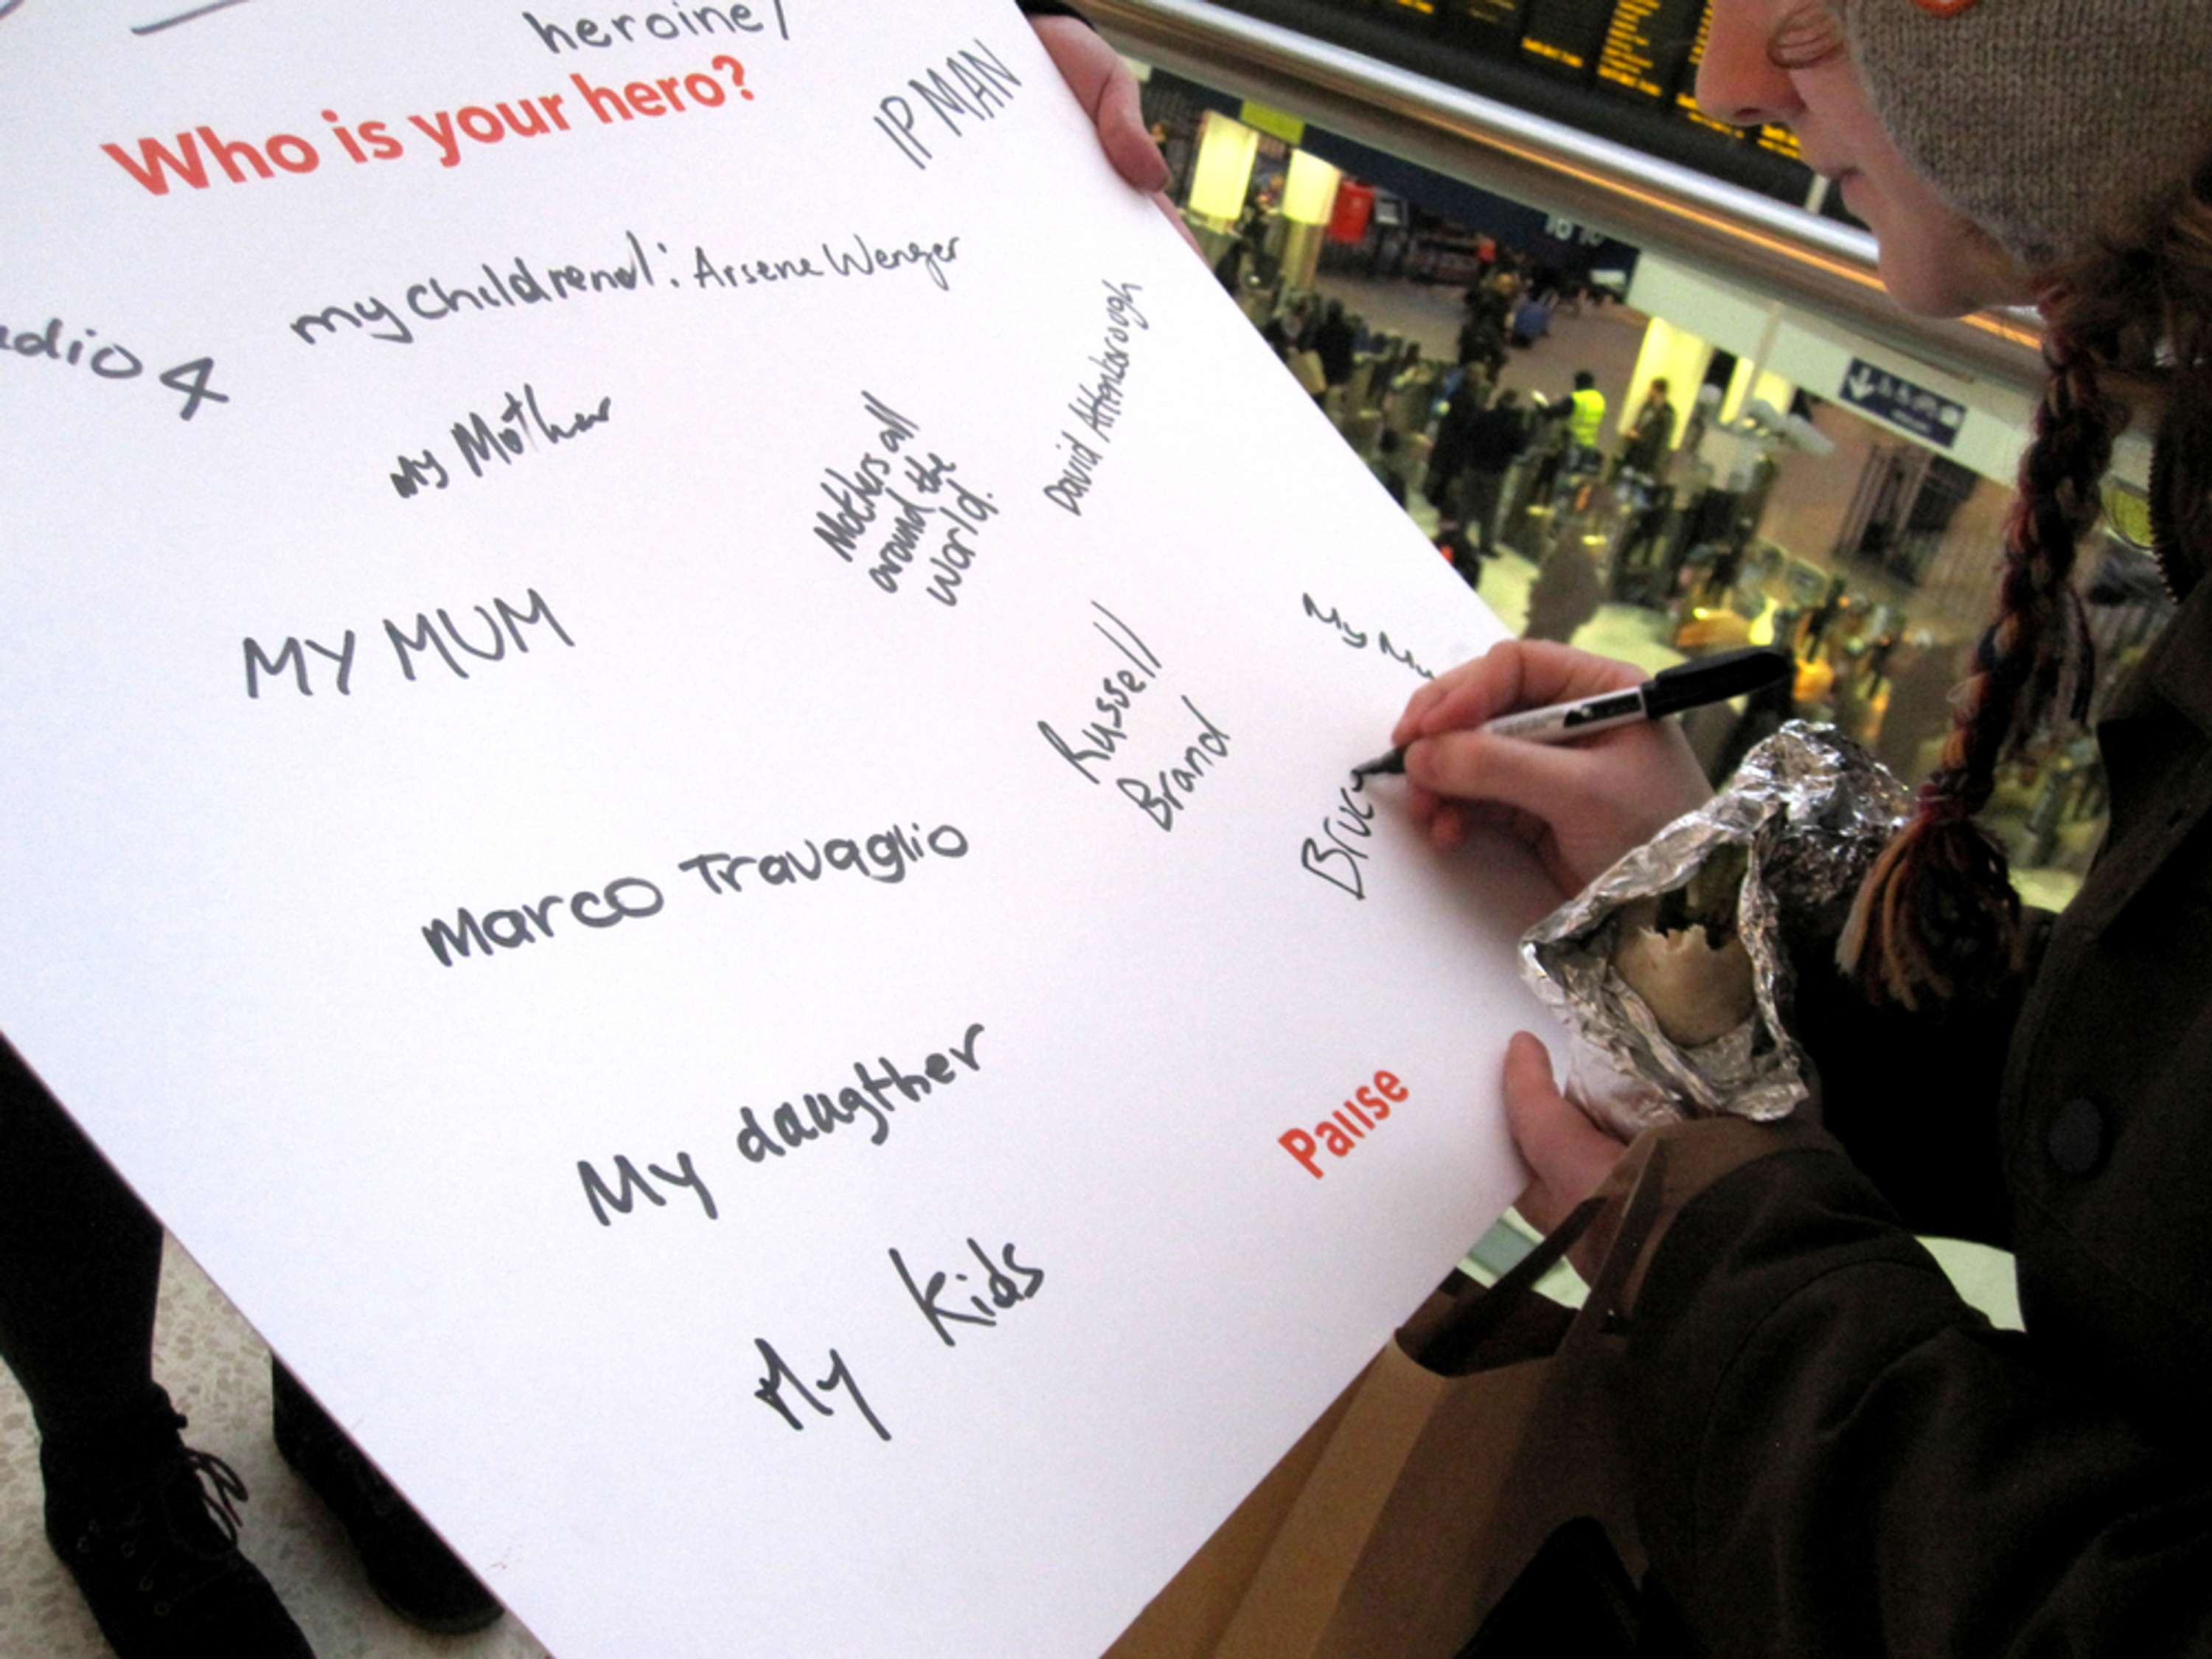 heroine/
Who is your hero?
IP MAN
my children!
Arsene Wenger
adio 4
my Mother
Mothers all
around the
world.
David Attenborough
MY MUM
Russell
Brand
My
Bruc
Marco Travaglio
My daugther
Pause
My kids